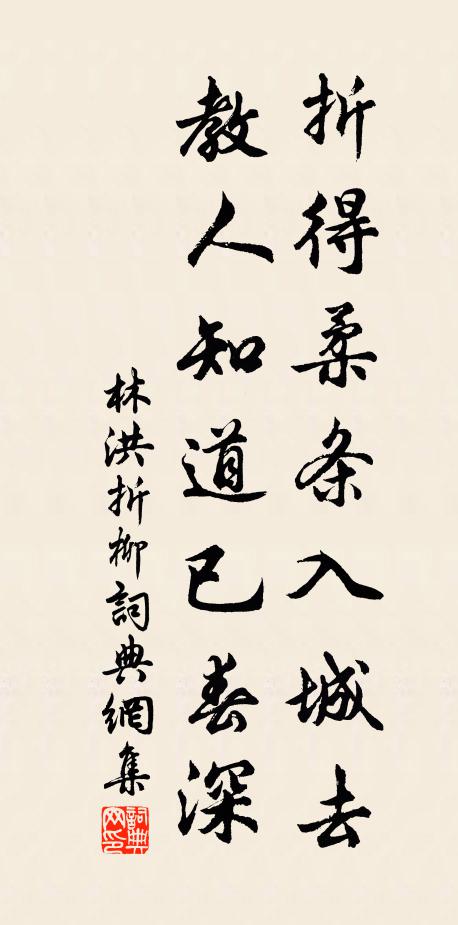 折得柔条入城去
教人知道已春深
林洪折柳詞典網集
詞典网印